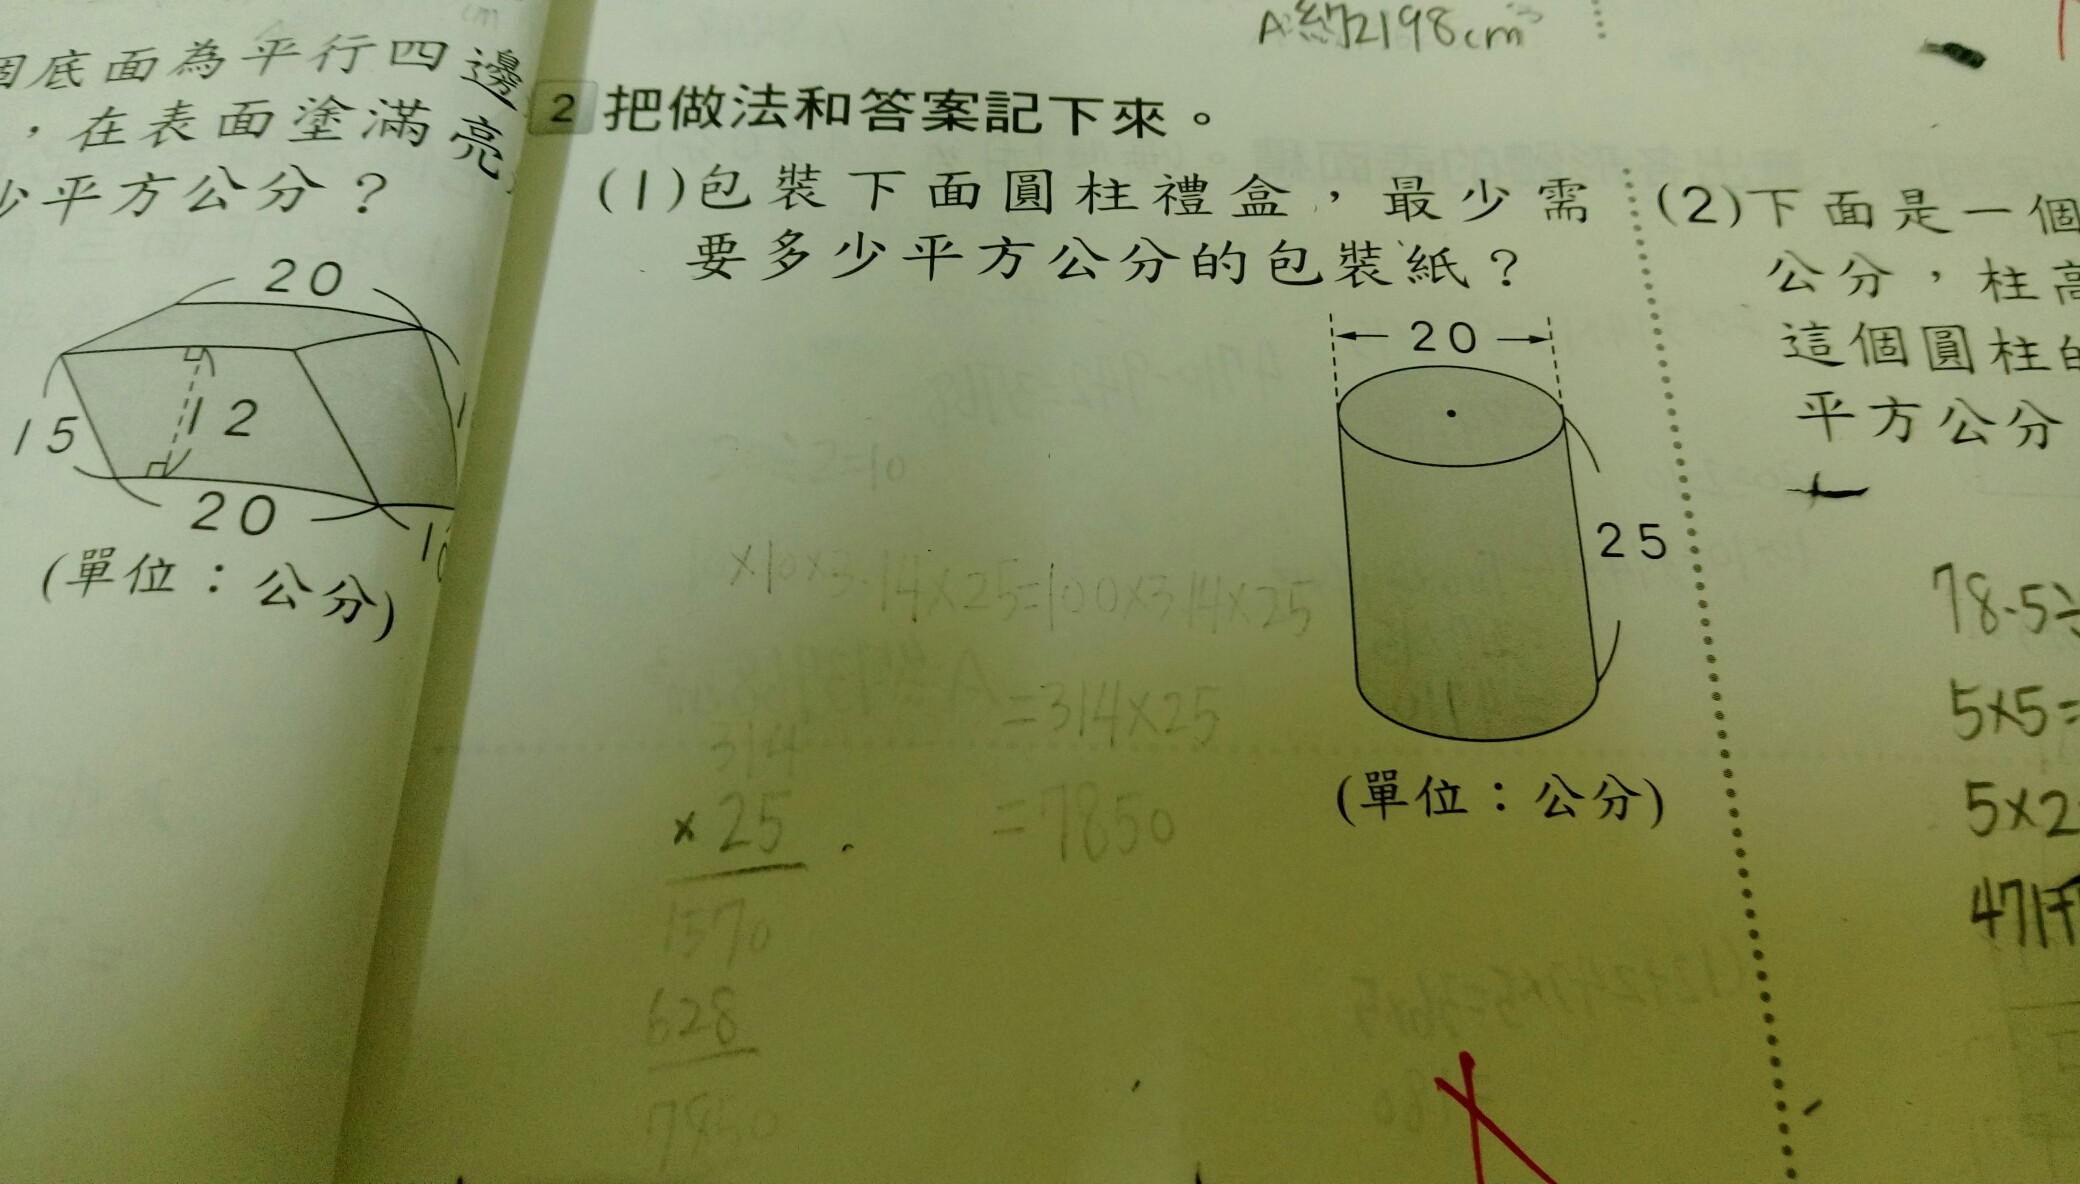 cm
底面為平行四邊
，在表面塗滿亮
少平方公分？
20
15
12
20
(單位：公分)
A:約2198cm³
2 把做法和答案記下來。
(1)包裝下面圓柱禮盒，最少需
要多少平方公分的包裝紙？
20
25
(單位：公分)
10×10×3.14×25=100×3.14×25
=314×25
=7850
314
×25
1570
628
7850
(2)下面是一個
公分，柱高
這個圓柱的
平方公分
78.5÷
5×5=
5×2
471